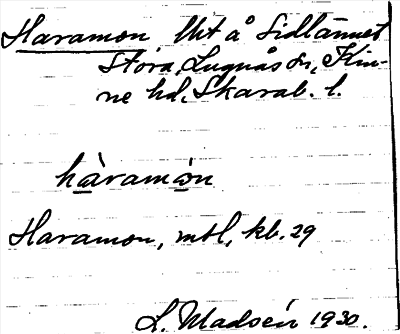 Haramon Utt å Sidlännet
Stora, Lugnås sn, Kin-
ne hd, Skarab. l.
hàramón
Haramon, mtl, kb. 29
L. Madsén 1930.